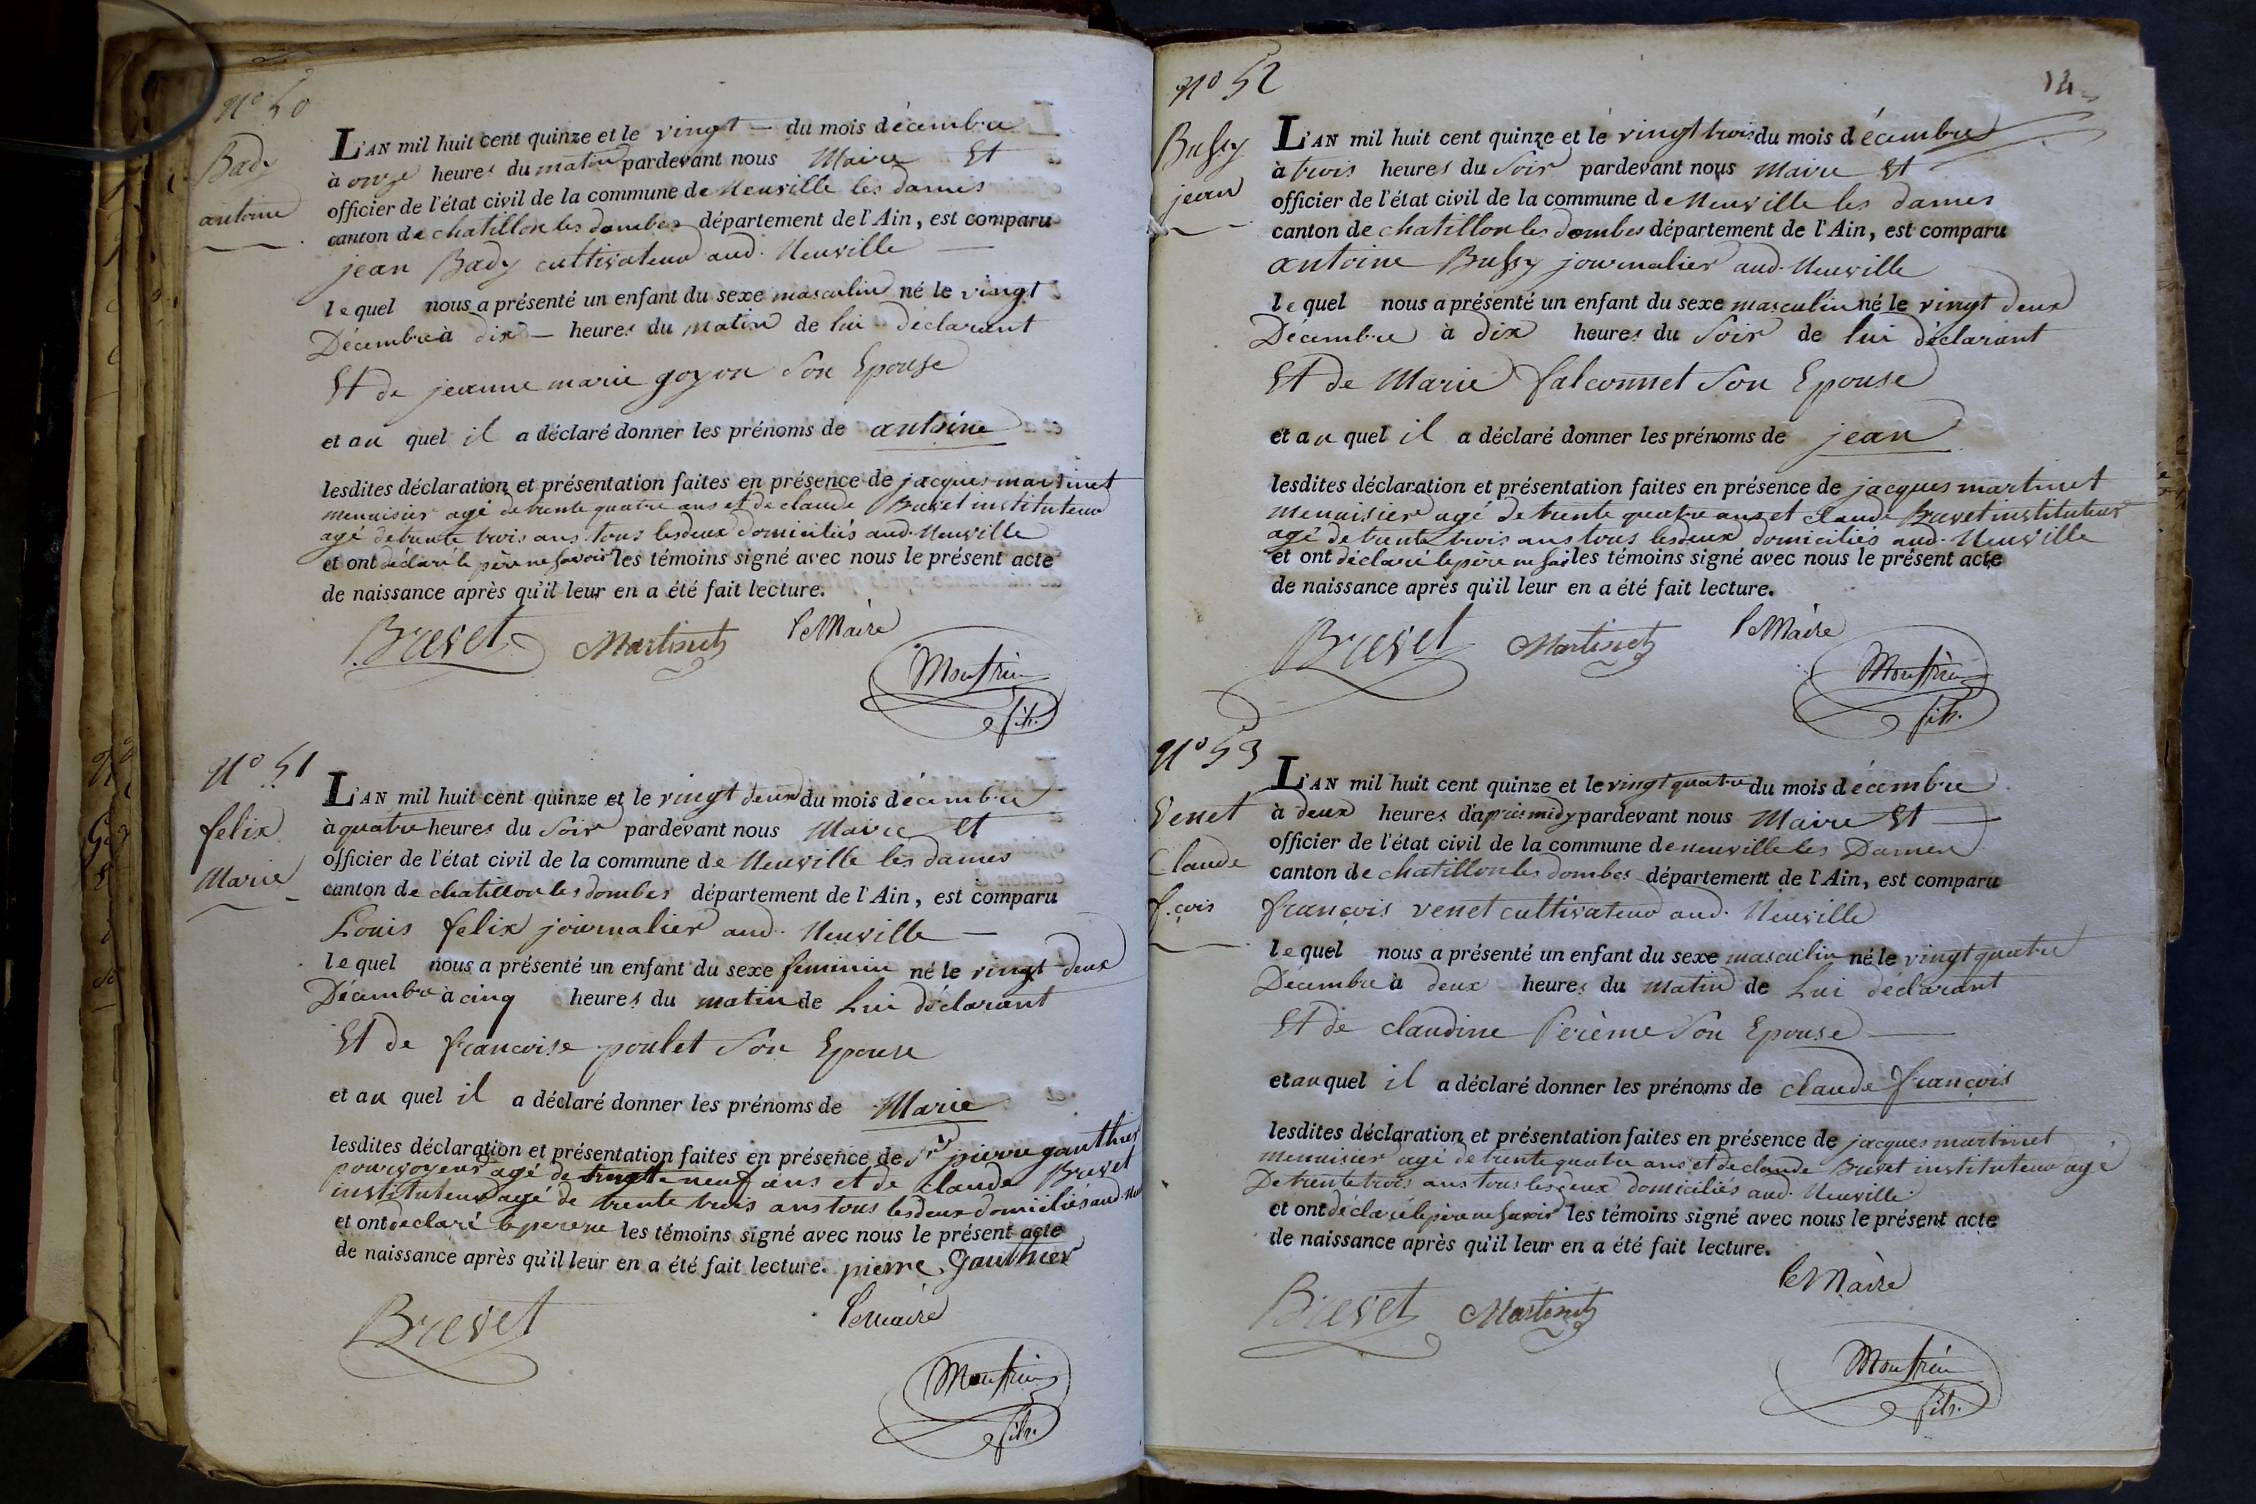 N° 50
Bady
antoine
L'AN mil huit cent quinze et le vingt — du mois décembre
à onze heures du matin pardevant nous Maire Et
officier de l'état civil de la commune de Neuville les dames
canton de chatillon les dombes département de l'Ain, est comparu
jean Bady cultivateur aud. Neuville
lequel nous a présenté un enfant du sexe masculin né le vingt
Décembre à dix — heures du matin de lui déclarant
Et de jeanne marie goyon Son Epouse
et au quel il a déclaré donner les prénoms de antoine
lesdites déclaration et présentation faites en présence de jacques martinet
menuisier agé de trente quatre ans et de claude Brevet instituteur
agé de trente trois ans tous les deux domiciliés aud. Neuville
et ont déclaré le père ne savoir les témoins signé avec nous le présent acte
de naissance après qu'il leur en a été fait lecture.
Brevet Martinet le Maire
fils
N° 51
felix
Marie
L'AN mil huit cent quinze et le vingt deux du mois décembre
à quatre heures du Soir pardevant nous Maire Et
officier de l'état civil de la commune de Neuville les dames
canton de chatillon les dombes département de l'Ain, est comparu
Louis felix journalier aud. Neuville —
lequel nous a présenté un enfant du sexe feminin né le vingt deux
Décembre à cinq heures du matin de Lui déclarant
Et de francoise poulet Son Epouse
et au quel il a déclaré donner les prénoms de Marie
lesdites déclaration et présentation faites en présence de Sr pierre gauthier
pourvoyeur agé de vingt neuf ans et de claude Brevet
instituteur agé de trente trois ans tous les deux domiciliés aud.
et ont déclaré le pere ne les témoins signé avec nous le présent acte
de naissance après qu'il leur en a été fait lecture. pierre Gauthier
Brevet le maire
fils
N° 52
Bussy
jean
L'AN mil huit cent quinze et le vingt trois du mois décembre
à trois heures du Soir pardevant nous Maire Et
officier de l'état civil de la commune de Neuville les dames
canton de chatillon les dombes département de l'Ain, est comparu
antoine Bussy journalier aud. Neuville
lequel nous a présenté un enfant du sexe masculin né le vingt deux
Décembre à dix heures du Soir de lui déclarant
Et de Marie falconnet Son Epouse
et au quel il a déclaré donner les prénoms de jean
lesdites déclaration et présentation faites en présence de jacques martinet
menuisier agé de trente quatre ans et claude Brevet instituteur
agé de trente trois ans tous les deux domiciliés aud. Neuville
et ont déclaré le père ne les témoins signé avec nous le présent acte
de naissance après qu'il leur en a été fait lecture.
Brevet Martinet le Maire
fils.
N° 53
Venet
Claude
f.çois
L'AN mil huit cent quinze et le vingt quatre du mois décembre
à deux heures d'après midy pardevant nous Maire Et
officier de l'état civil de la commune de neuville les Dames
canton de chatillon les dombes département de l'Ain, est comparu
françois venet cultivateur aud. Neuville
lequel nous a présenté un enfant du sexe masculin né le vingt quatre
Décembre à deux heures du matin de Lui déclarant
Et de claudine Son Epouse —
et au quel il a déclaré donner les prénoms de claude françois
lesdites déclaration et présentation faites en présence de jacques martinet
menuisier agé de trente quatre ans et de claude Brevet instituteur agé
De trente trois ans tous les deux domiciliés aud. Neuville
et ont déclaré le père ne savoir les témoins signé avec nous le présent acte
de naissance après qu'il leur en a été fait lecture.
le Maire
Brevet Martinet
fils.